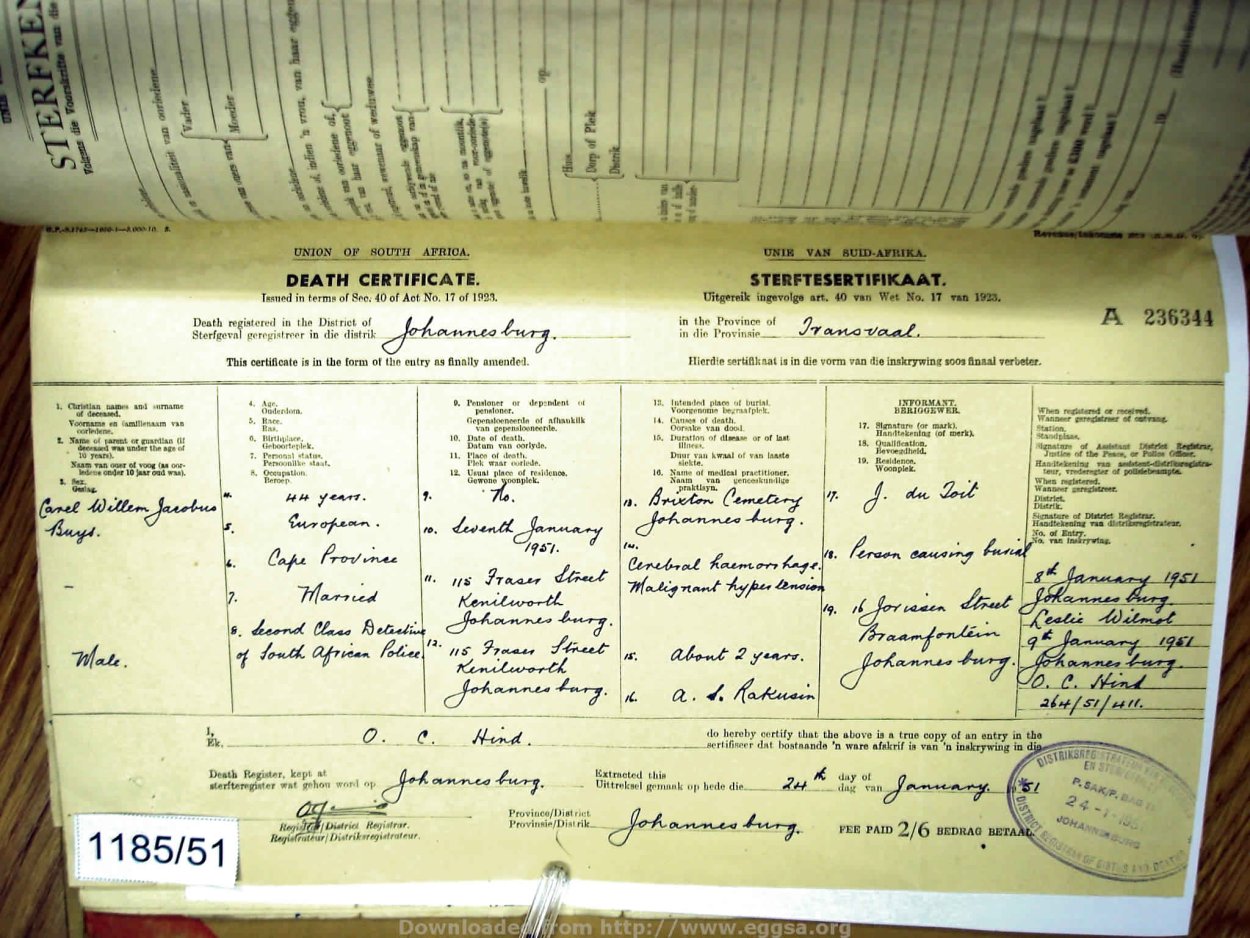 STERFKEN
Volgens die Voorskrifte van die
Vader
Moeder
Huis
Dorp of Plek
Distrik
UNION OF SOUTH AFRICA.
DEATH CERTIFICATE.
Issued in terms of Sec. 40 of Act No. 17 of 1923.
UNIE VAN SUID-AFRIKA.
STERFTESERTIFIKAAT.
Uitgereik ingevolge art. 40 van Wet No. 17 van 1923.
A 236344
Death registered in the District of
Sterfgeval geregistreer in die distrik Johannesburg.
in the Province of
in die Provinsie Transvaal.
This certificate is in the form of the entry as finally amended.
Hierdie sertifikaat is in die vorm van die inskrywing soos finaal verbeter.
1. Christian names and surname
of deceased.
Voorname en familienaam van
oorledene.
2. Name of parent or guardian (if
deceased was under the age of
10 years).
Naam van ouer of voog (as oor-
ledene onder 10 jaar oud was).
3. Sex.
Geslag.
Carel Willem Jacobus
Buys.
–
Male.
4. Age.
Ouderdom.
5. Race.
Ras.
6. Birthplace.
Geboorteplek.
7. Personal status.
Persoonlike staat.
8. Occupation.
Beroep.
4. 44 years.
5. European.
6. Cape Province
7. Married
8. Second Class Detective
of South African Police.
9. Pensioner or dependent of
pensioner.
Gepensioeneerde of afhanklik
van gepensioeneerde.
10. Date of death.
Datum van oorlyde.
11. Place of death.
Plek waar oorlede.
12. Usual place of residence.
Gewone woonplek.
9. No.
10. Seventh January
1951.
11. 115 Fraser Street
Kenilworth
Johannesburg.
12. 115 Fraser Street
Kenilworth
Johannesburg.
13. Intended place of burial.
Voorgenome begraafplek.
14. Causes of death.
Oorsake van dood.
15. Duration of disease or of last
illness.
Duur van kwaal of van laaste
siekte.
16. Name of medical practitioner.
Naam van geneeskundige
praktisyn.
13. Brixton Cemetery
Johannesburg.
14.
Cerebral haemorrhage.
Malignant hypertension
15. About 2 years.
16. A. S. Rakusin
INFORMANT.
BERIGGEWER.
17. Signature (or mark).
Handtekening (of merk).
18. Qualification.
Bevoegdheid.
19. Residence.
Woonplek.
17. J. du Toit
18. Person causing burial
19. 16 Jorissen Street
Braamfontein
Johannesburg.
When registered or received.
Wanneer geregistreer of ontvang.
Station.
Standplaas.
Signature of Assistant District Registrar,
Justice of the Peace, or Police Officer.
Handtekening van assistent-distriksregistra-
teur, vrederegter of polisiebeampte.
When registered.
Wanneer geregistreer.
District.
Distrik.
Signature of District Registrar.
Handtekening van distriksregistrateur.
No. of Entry.
No. van inskrywing.
8th January 1951
Johannesburg.
Leslie Wilmot
9th January 1951
Johannesburg.
O. C. Hind
264/51/411.
I,
Ek, O. C. Hind.
do hereby certify that the above is a true copy of an entry in the
sertifiseer dat bostaande 'n ware afskrif is van 'n inskrywing in die
Death Register, kept at
sterfteregister wat gehou word op Johannesburg.
Extracted this
Uittreksel gemaak op hede die 24th day of
dag van January 1951
Registrar/District Registrar.
Registrateur/Distriksregistrateur.
Province/District
Provinsie/Distrik Johannesburg.
FEE PAID 2/6 BEDRAG BETAAL.
P. SAK/P. BAG
24-1-195
JOHANNESBURG
DISTRICT REGISTRAR OF BIRTHS AND DEATHS
1185/51
Downloaded from http://www.eggsa.org